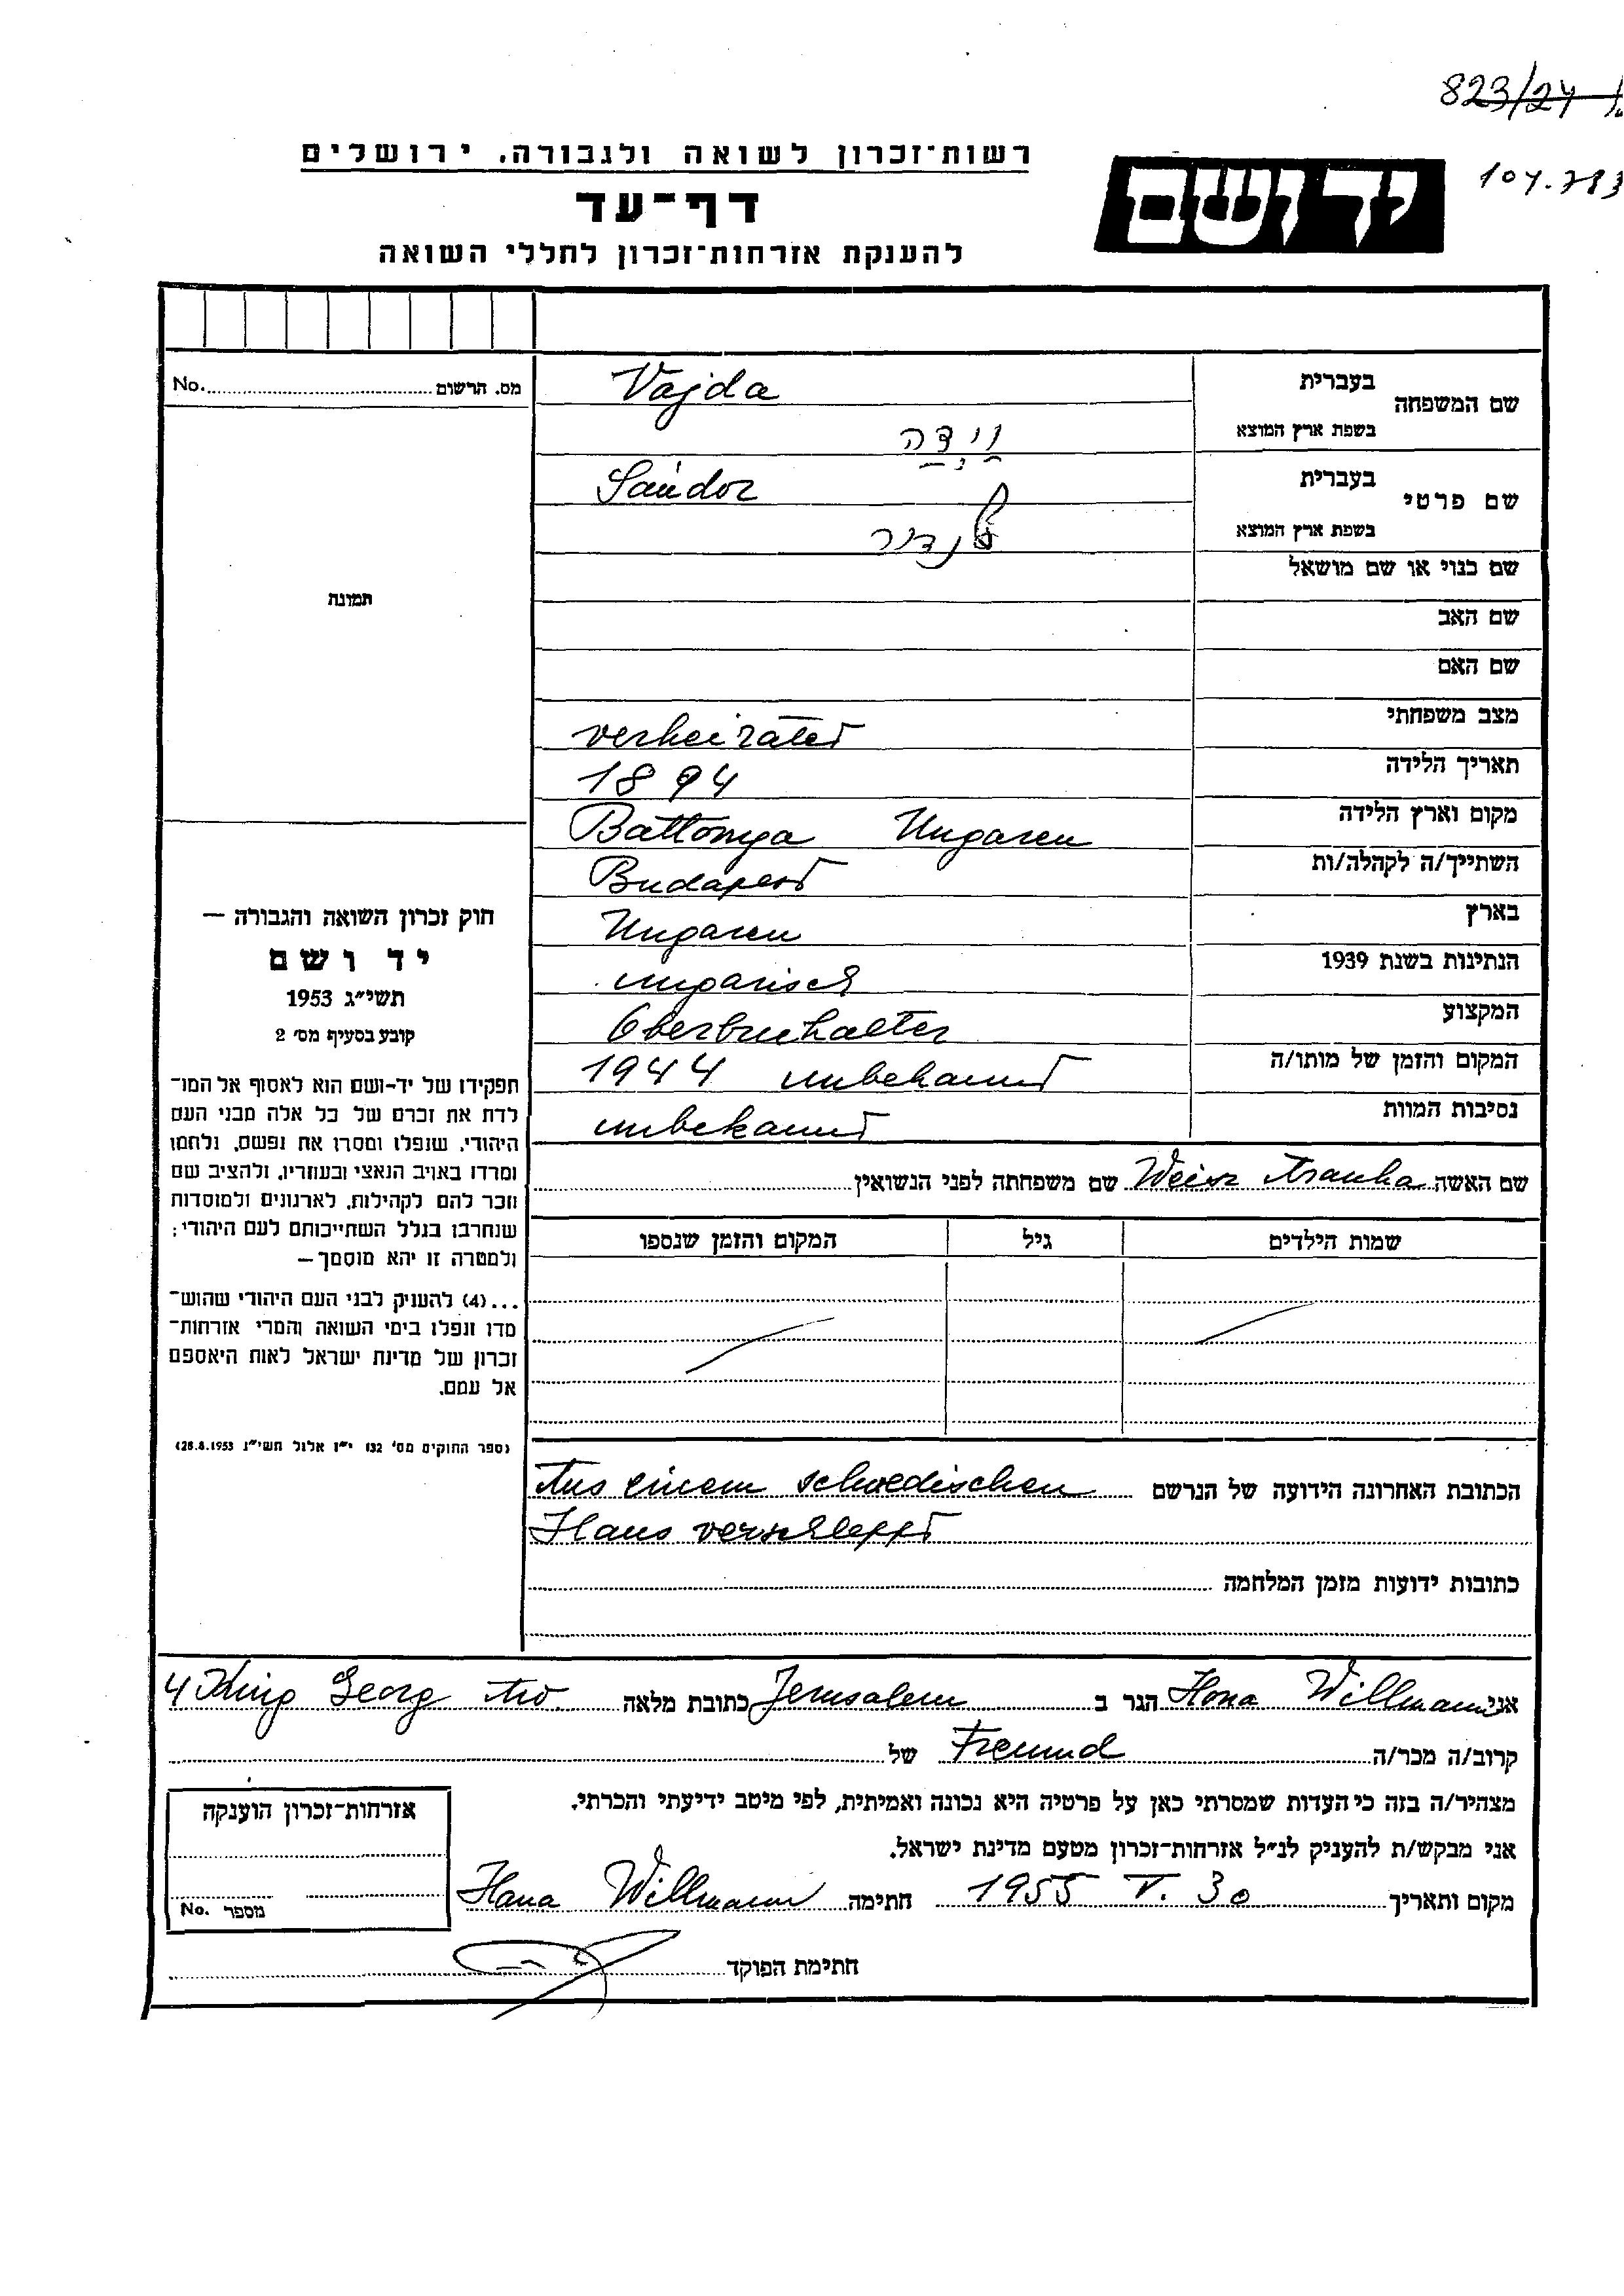 823/24
104.783
רשות־זכרון לשואה ולגבורה, ירושלים
יד ושם
דף־עד
להענקת אזרחות־זכרון לחללי השואה
מס. הרשום No.
תמונה
שם המשפחה בעברית Vajda
בשפת ארץ המוצא וידה
שם פרטי בעברית Sándor
בשפת ארץ המוצא שנדור
שם כנוי או שם מושאל
שם האב
שם האם
מצב משפחתי verheiratet
תאריך הלידה 1894
מקום וארץ הלידה Battonya Ungaren
השתייך/ה לקהלה/ות Budapest
בארץ Ungaren
הנתינות בשנת 1939 ungarisch
המקצוע Oberbuchalter
המקום והזמן של מותו/ה 1944 unbekannt
נסיבות המוות unbekannt
חוק זכרון השואה והגבורה —
יד ושם
תשי״ג 1953
קובע בסעיף מס׳ 2
תפקידו של יד-ושם הוא לאסוף אל המו־
לדת את זכרם של כל אלה מבני העם
היהודי, שנפלו ומסרו את נפשם, נלחמו
ומרדו באויב הנאצי ובעוזריו, ולהציב שם
וזכר להם לקהילות, לארגונים ולמוסדות
שנחרבו בגלל השתייכותם לעם היהודי;
ולמטרה זו יהא מוסמך —
...(4) להעניק לבני העם היהודי שהוש־
מדו ונפלו בימי השואה והמרי אזרחות־
זכרון של מדינת ישראל לאות היאספם
אל עמם.
(ספר החוקים מס׳ 132 י״ז אלול תשי״ג 28.8.1953)
שם האשה Weisz Aranka שם משפחתה לפני הנשואין
שמות הילדים גיל המקום והזמן שנספו
הכתובת האחרונה הידועה של הנרשם Aus einem schwedischen
Haus verschleppt
כתובות ידועות מזמן המלחמה
אני Ilona Willmann הגר ב Jerusalem כתובת מלאה 4 King Georg Av.
קרוב/ה מכר/ה Freund של
מצהיר/ה בזה כי העדות שמסרתי כאן על פרטיה היא נכונה ואמיתית, לפי מיטב ידיעתי והכרתי.
אני מבקש/ת להעניק לנ״ל אזרחות־זכרון מטעם מדינת ישראל.
מקום ותאריך 1955 V. 30 חתימה Ilona Willmann
חתימת הפוקד
אזרחות־זכרון הוענקה
מספר No.